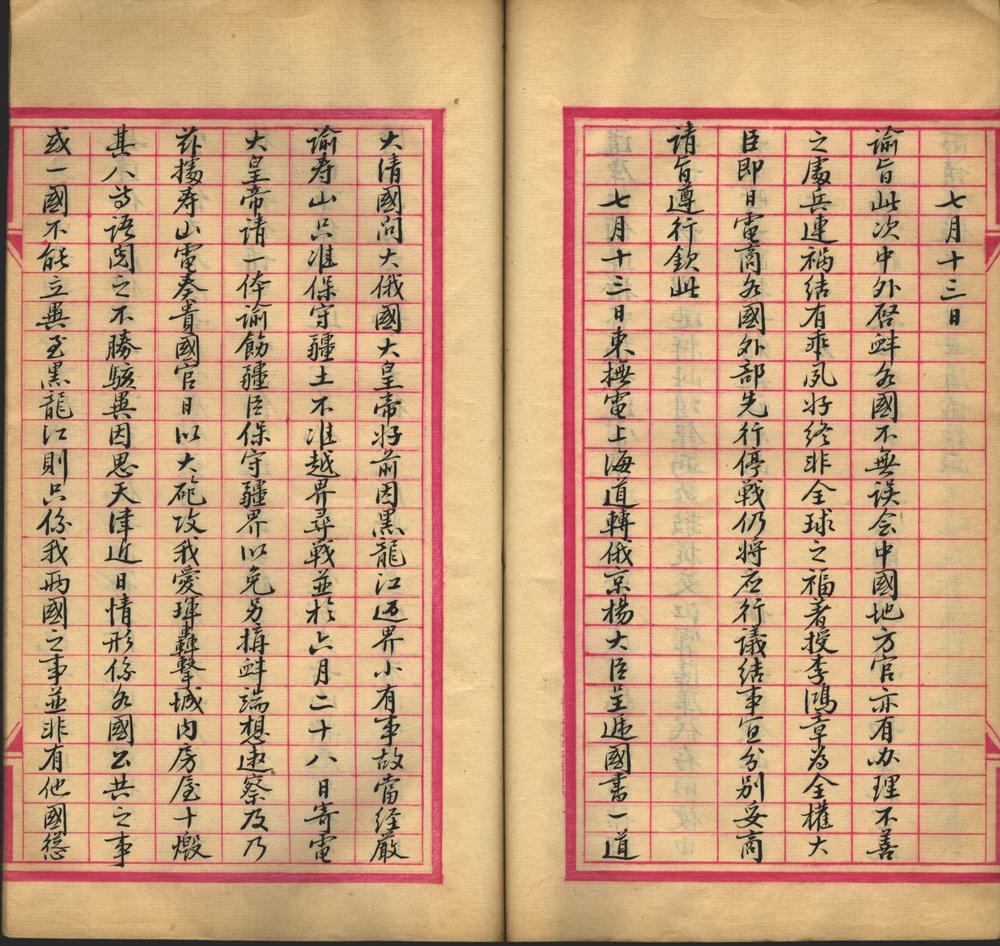 七月十三日
諭旨此次中外啓衅各國不無誤会中國地方官亦有办理不善
之處兵連禍結有乖夙好終非全球之福著授李鴻章為全權大
臣即日電商各國外部先行停戰仍将应行議結事宜分别妥商
請旨遵行欽此
七月十三日東撫電上海道轉俄京楊大臣呈遞國書一道
大清國問大俄國大皇帝好前因黑龍江边界小有事故當經嚴
諭寿山只准保守疆土不准越界尋戰並於六月二十八日寄電
大皇帝請一体諭飭疆臣保守疆界以免另搆衅端想速察及乃
兹據寿山電奏貴國官日以大砲攻我愛琿轟擊城内房屋十燬
其八等语閲之不勝駭異因思天津近日情形係各國公共之事
或一國不能立異至黑龍江則只係我兩國之事並非有他國慫